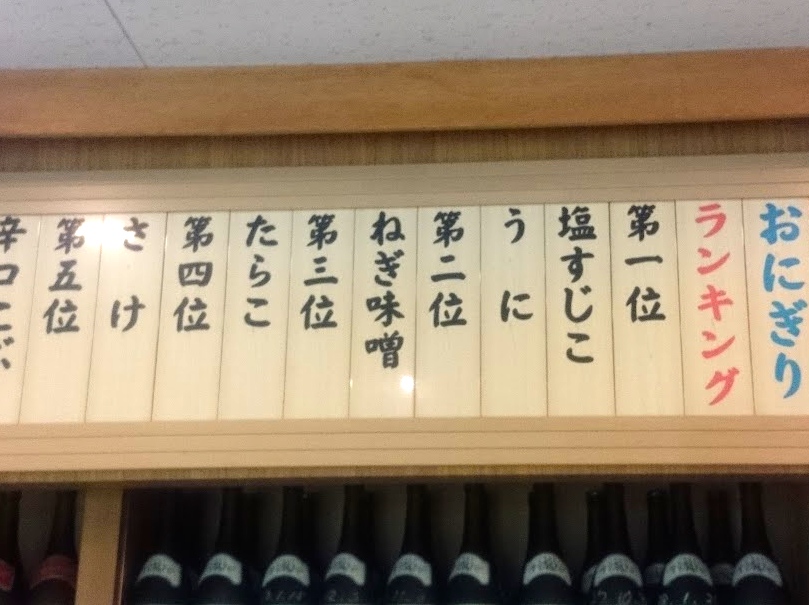 おにぎり
ランキング
第一位
塩すじこ
うに
第二位
ねぎ味噌
第三位
たらこ
第四位
さけ
第五位
辛口こぶ